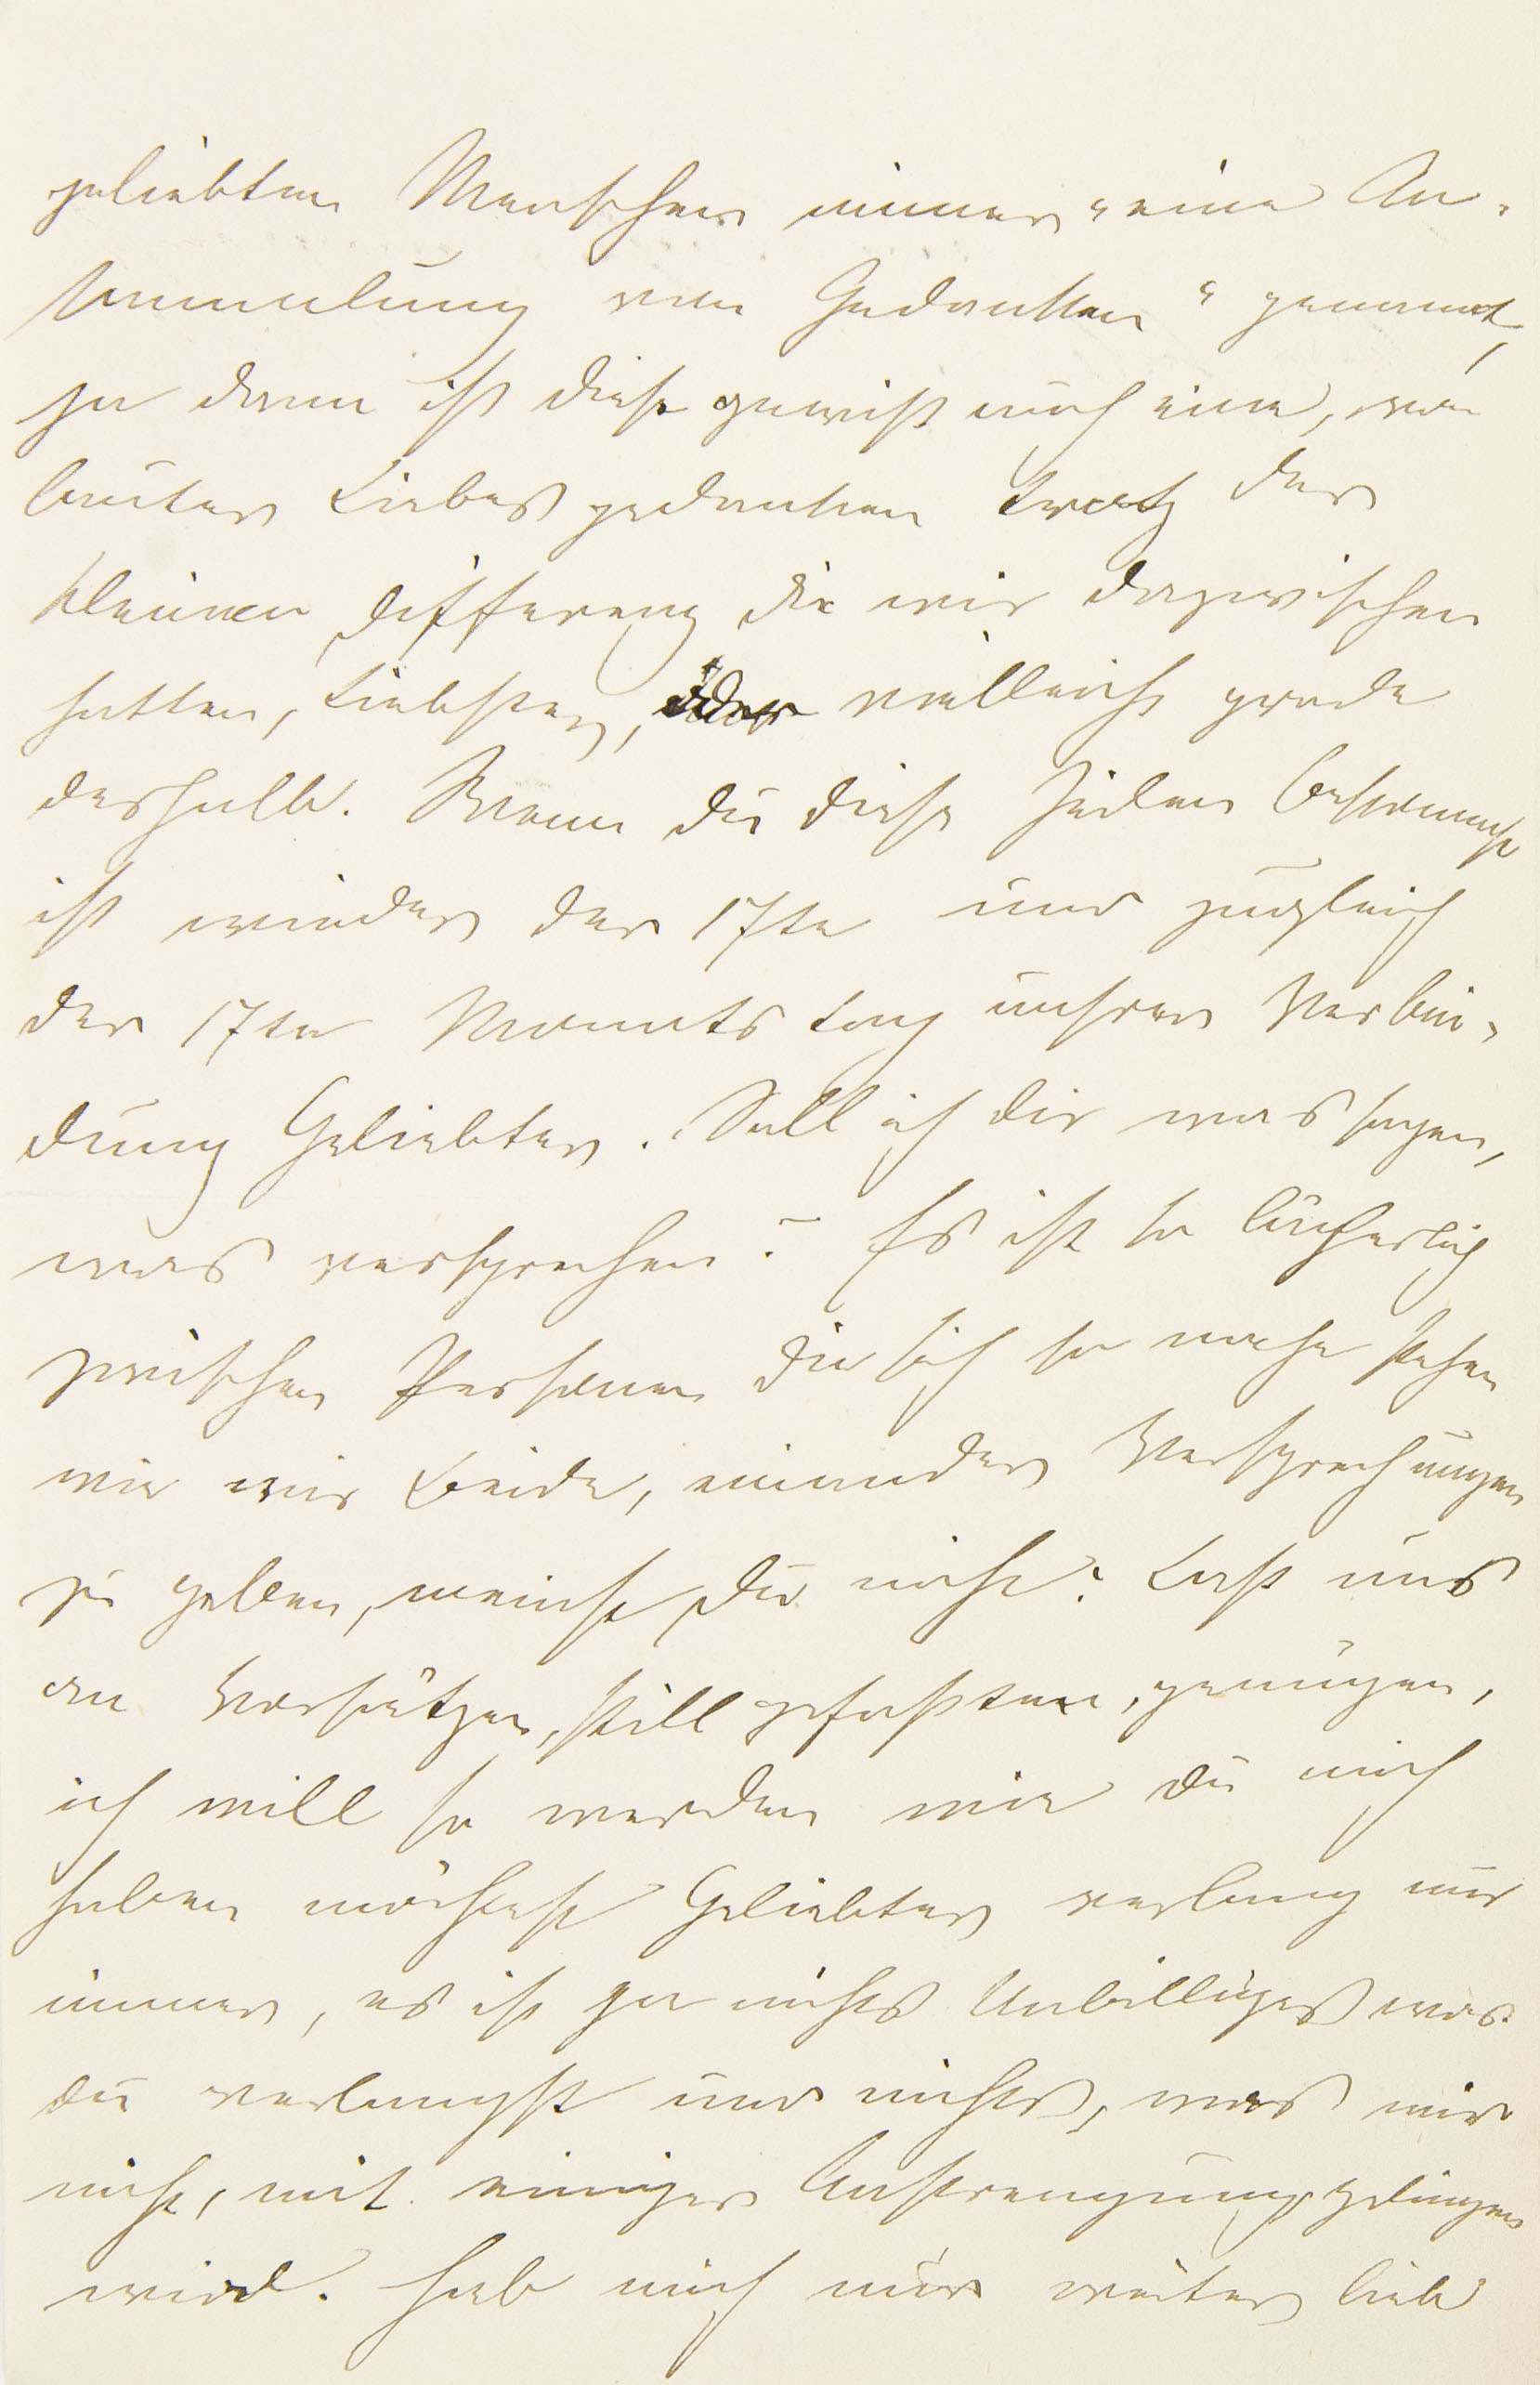 geliebten Menschen immer „eine An-
sammlung von Gedanken" genannt,
ja dann ist diese gewiß auch eine, von
lauter Liebesgedanken trotz der
kleinen Differenz die wir dazwischen
hatten, Liebster, oder vielleicht grade
deshalb. Wenn du diese Zeilen bekommst
ist wieder der 17te und zugleich
der 17te Monatstag unsrer Verbin-
dung Geliebter. Soll ich dir was sagen,
was versprechen? Es ist so lächerlich
zwischen Personen die sich so nahe stehen
wie wir beide, einander Versprechungen
zu geben, meinst du nicht? Laß uns
an Vorsätzen, still gefaßten, genügen,
ich will so werden wie du mich
haben möchtest Geliebter verlang nur
immer, es ist ja nichts Unbilliges was
du verlangst und nichts, was mir
nicht, mit einiger Anstrengung gelingen
wird. Hab mich nur weiter lieb